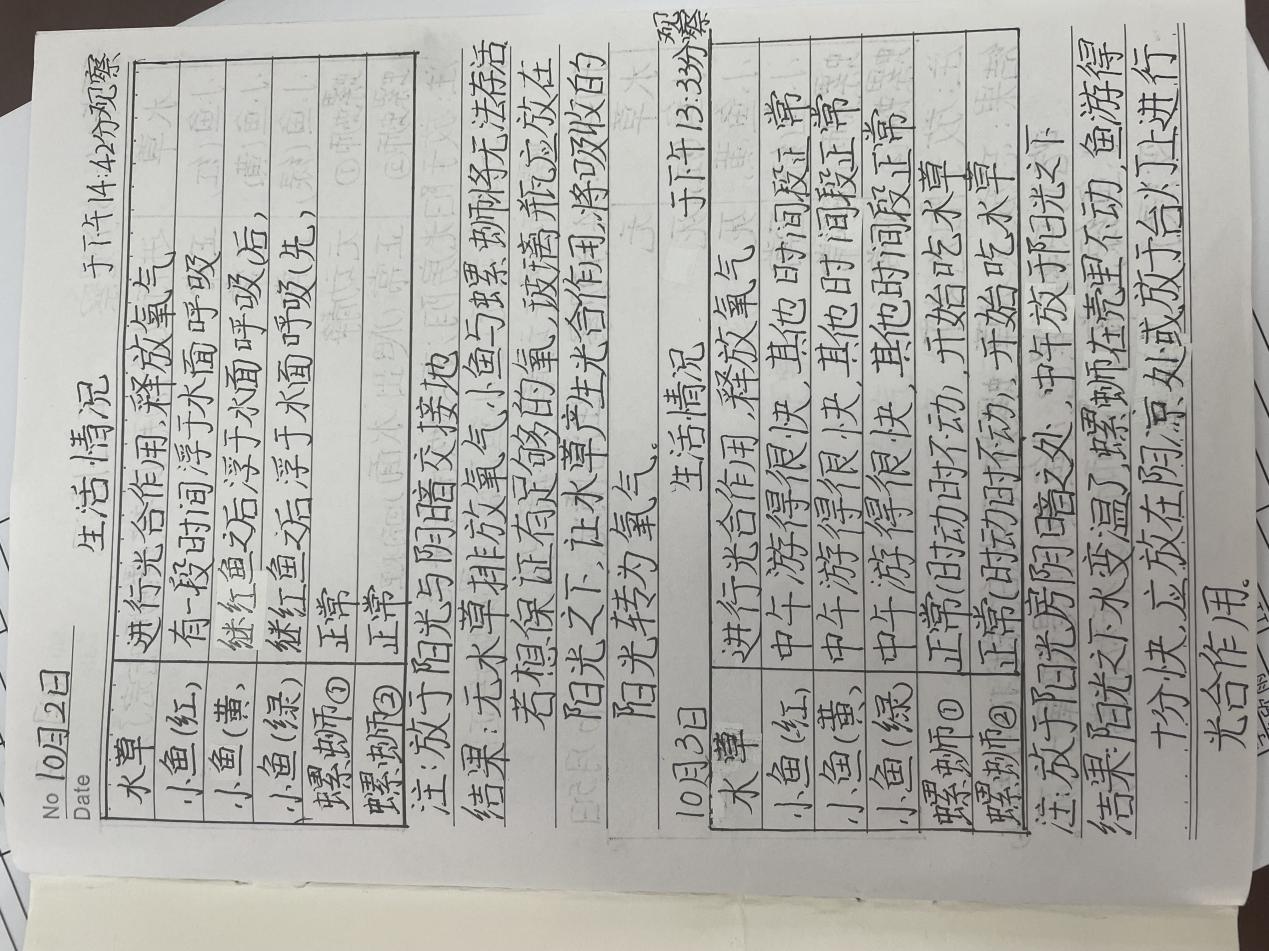 No 10月2日
Date 生活情况 于下午14:42分观察
水草 进行光合作用,释放氧气
小鱼(红) 有一段时间浮于水面呼吸
小鱼(黄) 继红鱼之后浮于水面呼吸(后)
小鱼(绿) 继红鱼之后浮于水面呼吸(先)
螺蛳① 正常
螺蛳② 正常
注:放于阳光与阴暗交接地
结果:无水草排放氧气,小鱼与螺蛳将无法存活
若想保证有足够的氧,玻璃瓶应放在
阳光之下,让水草产生光合作用,将吸收的
阳光转为氧气.
10月3日 生活情况 于下午13:33分观察
水草 进行光合作用,释放氧气
小鱼(红) 中午游得很快,其他时间段正常
小鱼(黄) 中午游得很快,其他时间段正常
小鱼(绿) 中午游得很快,其他时间段正常
螺蛳① 正常(时动时不动),开始吃水草
螺蛳② 正常(时动时不动),开始吃水草
注:放于阳光房阴暗之处,中午放于阳光之下
结果:阳光之下水变温了,螺蛳在壳里不动,鱼游得
十分快,应放在阴凉处或放于台灯上进行
光合作用.